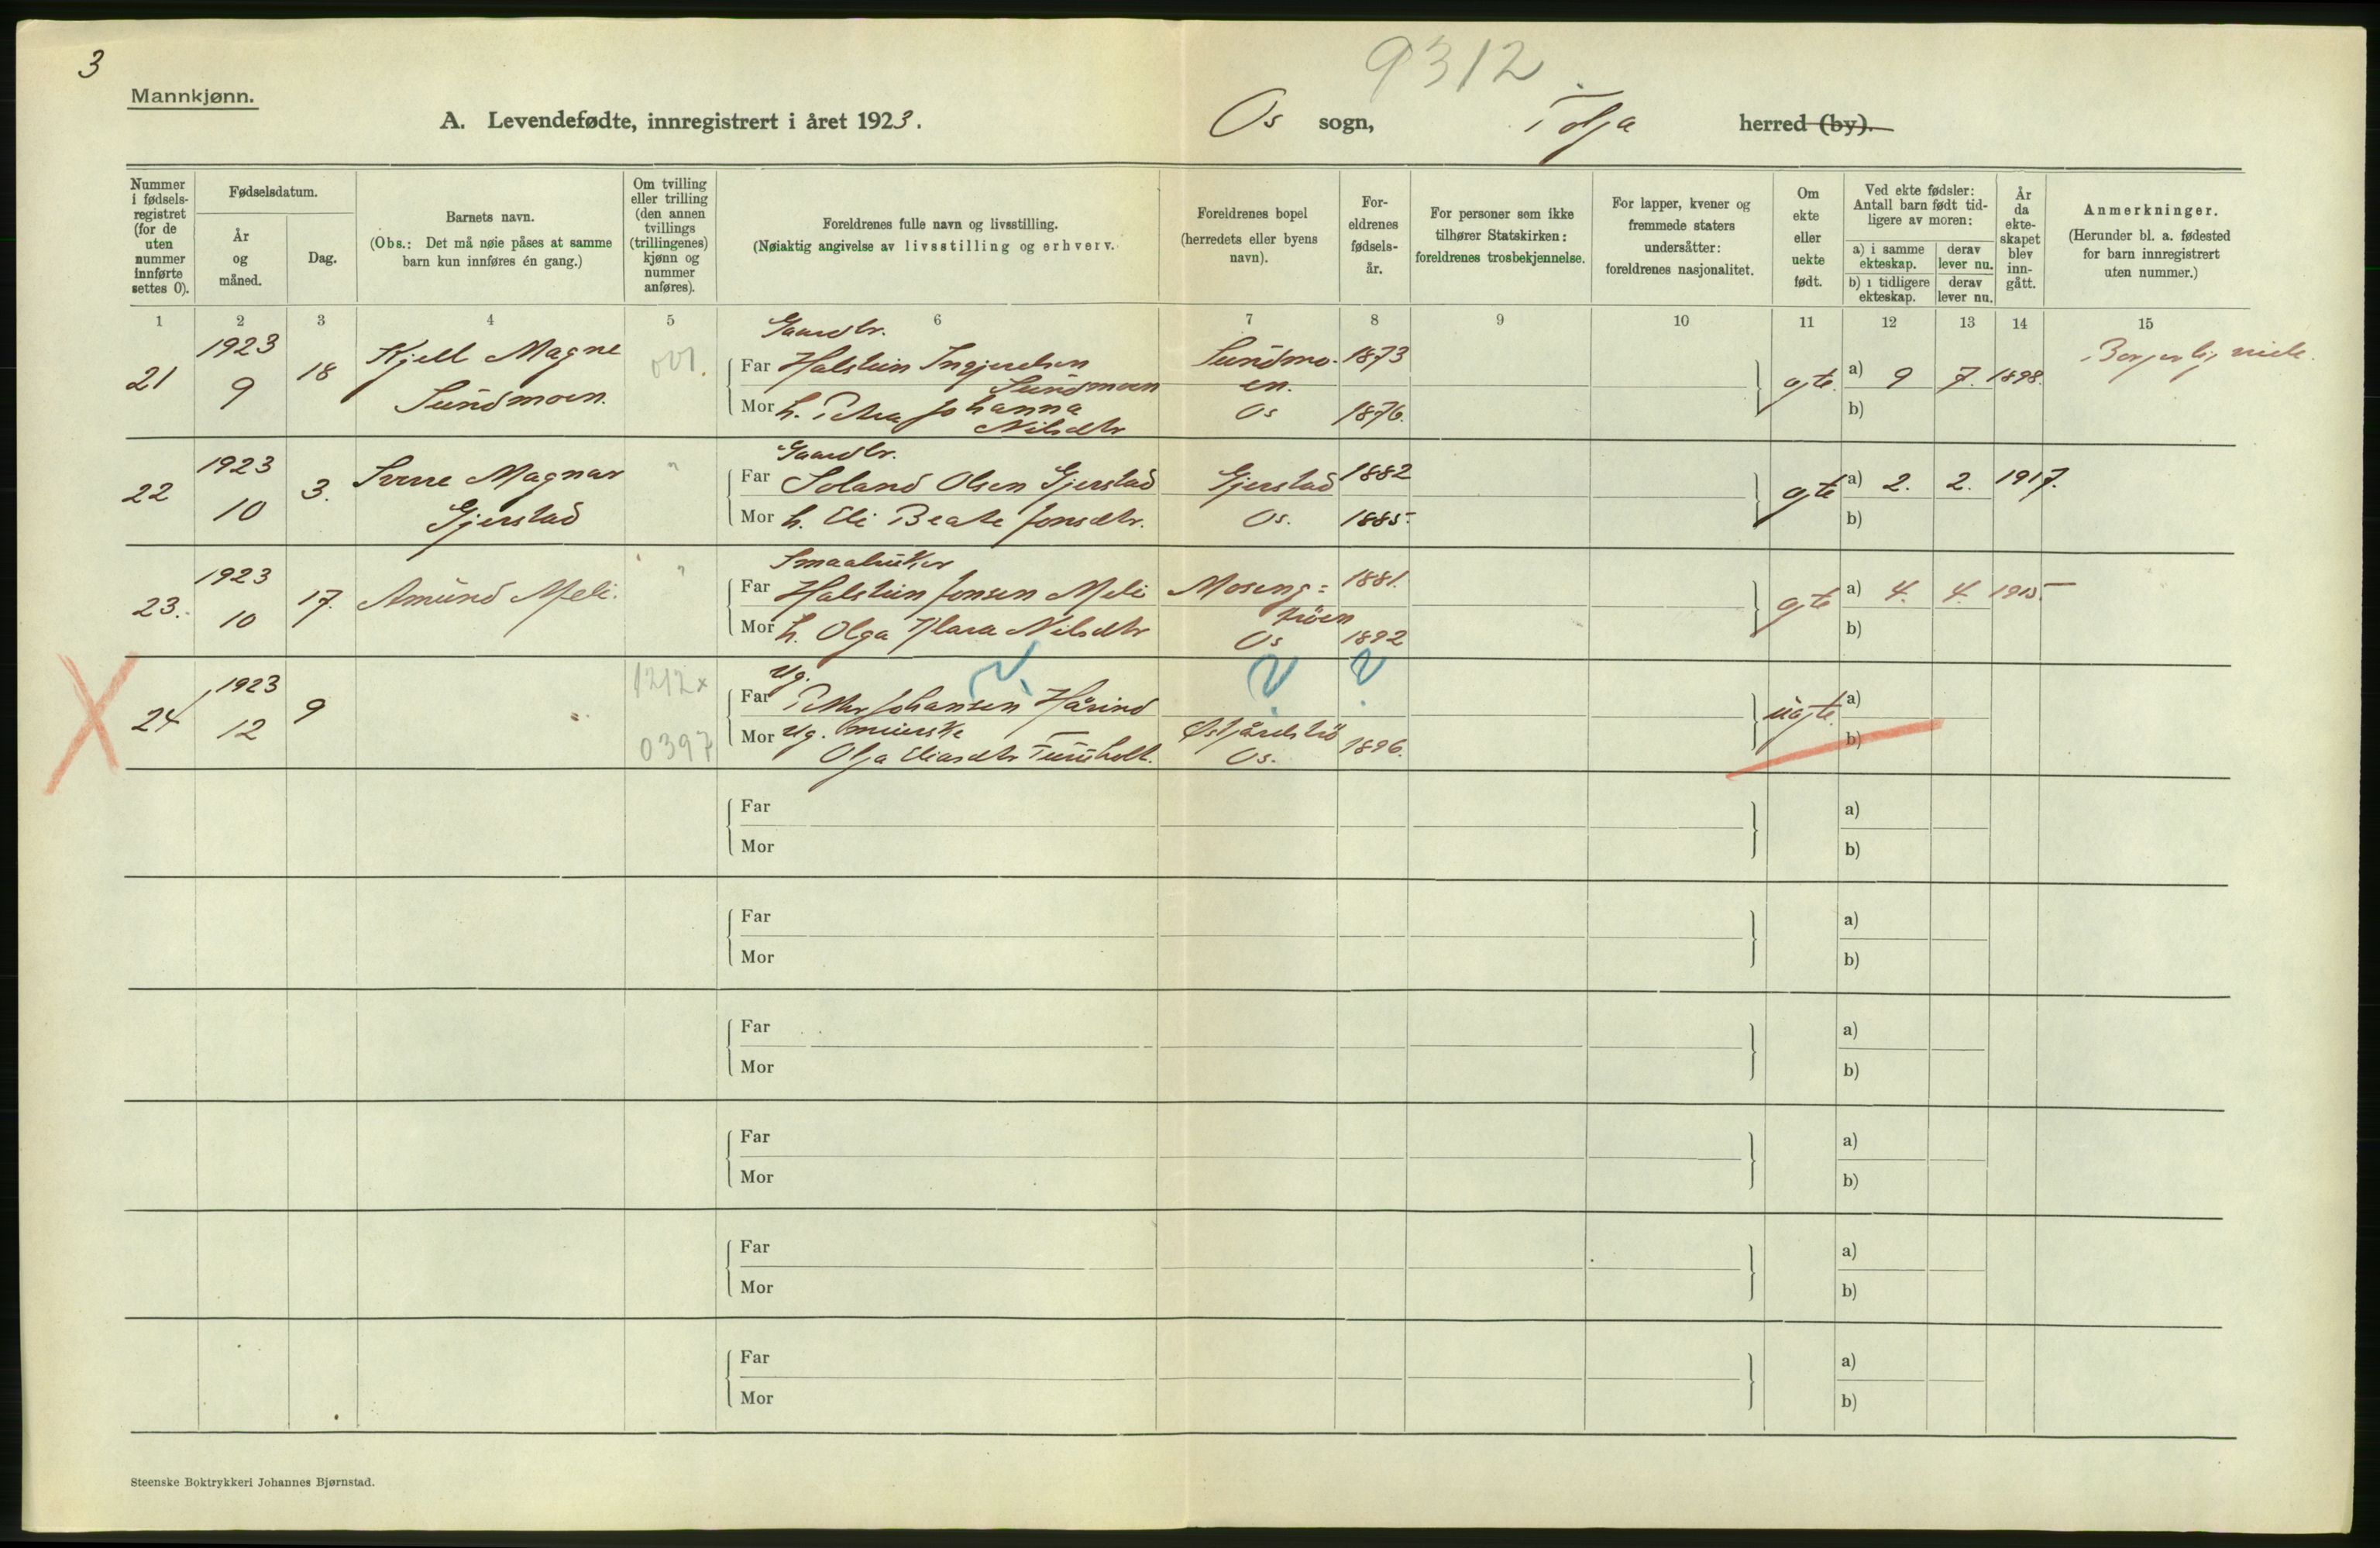 3
9312
Mannkjønn.
A. Levendefødte, innregistrert i året 1923.
Os sogn, Tolga herred (by).
Nummer i fødsels-registret (for de uten nummer innførte settes 0).
Fødselsdatum.
År og måned.
Dag.
Barnets navn.
(Obs.: Det må nøie påses at samme barn kun innføres én gang.)
Om tvilling eller trilling (den annen tvillings (trillingenes) kjønn og nummer anføres).
Foreldrenes fulle navn og livsstilling.
(Nøiaktig angivelse av livsstilling og erhverv.
Foreldrenes bopel (herredets eller byens navn).
For-eldrenes fødsels-år.
For personer som ikke tilhører Statskirken: foreldrenes trosbekjennelse.
For lapper, kvener og fremmede staters undersåtter: foreldrenes nasjonalitet.
Om ekte eller uekte født.
Ved ekte fødsler: Antall barn født tid-ligere av moren:
a) i samme ekteskap.
derav lever nu.
b) i tidligere ekteskap.
derav lever nu.
År da ekte-skapet blev inn-gått.
Anmerkninger.
(Herunder bl. a. fødested for barn innregistrert uten nummer.)
1 2 3 4 5 6 7 8 9 10 11 12 13 14 15
21 1923 9 18 Kjell Magne Sundmoen. 001.
Gaardbr.
Far Halstein Ingjeru Sundmoen Sundmo- 1873
en.
Mor h. Petra Johanna Nilsdtr Os 1876.
ægte. a) 9 7. 1898.
b)
22 1923 10 3. Sverre Magnar Gjerstad "
Gaardbr.
Far Soland Olsen Gjerstad Gjerstad 1882
Mor h. Eli Beate Jonsdtr. Os. 1885.
ægte a) 2. 2. 1917.
b)
23. 1923 10 17. Amund Meli. "
Smaabruker
Far Halstein Jonsen Meli Moseng= 1881.
trøen
Mor h. Olga Klara Nilsdtr Os 1892
ægte a) 4. 4. 1915.
b)
24 1923 12 9 1212x
0397
Ug.
Far Petter Johansen Hårind ? ? ?
Mor Ug. meierske
Olga Eliasdtr Os. 1896.
uægte. a)
b)
Far
Mor
a)
b)
Far
Mor
a)
b)
Far
Mor
a)
b)
Far
Mor
a)
b)
Far
Mor
a)
b)
Far
Mor
a)
b)
Steenske Boktrykkeri Johannes Bjørnstad.